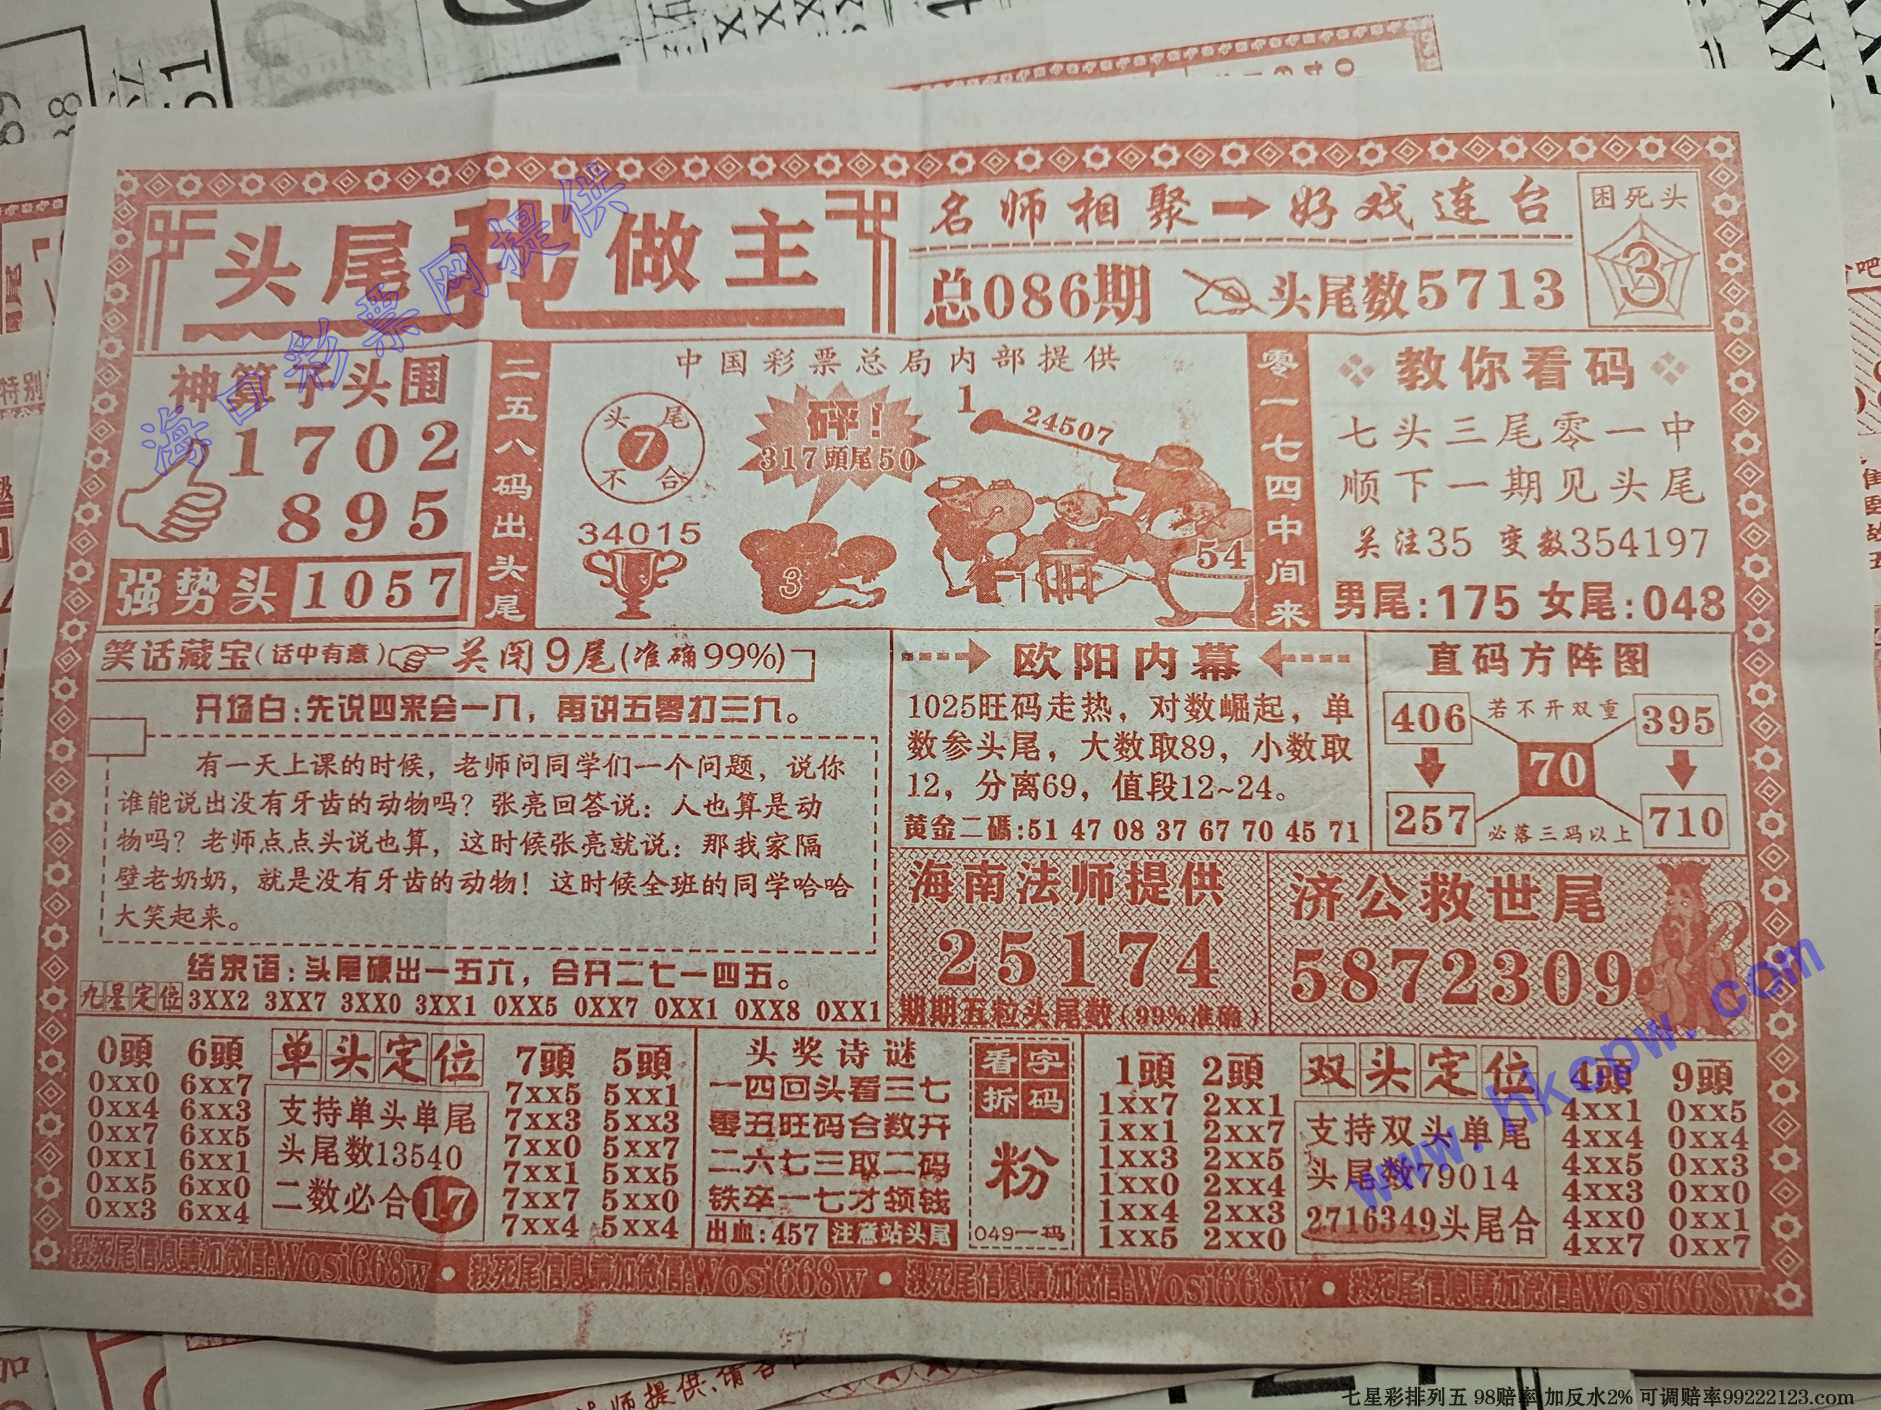 头尾我做主
名师相聚→好戏连台
总086期
头尾数5713
困死头
3
神算子头围
1702
895
强势头 1057
二五八码出头尾
中国彩票总局内部提供
头尾
7
不合
34015
砰!
317頭尾50
3
1
24507
54
零一七四中间来
教你看码
七头三尾零一中
顺下一期见头尾
关注35 变数354197
男尾:175 女尾:048
笑话藏宝(话中有意) 关闭9尾(准确99%)
开场白:先说四来会一八,再讲五零打三九。
有一天上课的时候,老师问同学们一个问题,说你
谁能说出没有牙齿的动物吗?张亮回答说:人也算是动
物吗?老师点点头说也算,这时候张亮就说:那我家隔
壁老奶奶,就是没有牙齿的动物!这时候全班的同学哈哈
大笑起来。
结束语:头尾硬出一五六,合开二七一四五。
九星定位 3XX2 3XX7 3XX0 3XX1 0XX5 0XX7 0XX1 0XX8 0XX1
欧阳内幕
1025旺码走热,对数崛起,单
数参头尾,大数取89,小数取
12,分离69,值段12~24。
黄金二碼:51 47 08 37 67 70 45 71
直码方阵图
406 若不开双重 395
70
257 必落三码以上 710
海南法师提供
25174
期期五粒头尾数(99%准确)
济公救世尾
5872309
0頭 6頭
0xx0 6xx7
0xx4 6xx3
0xx7 6xx5
0xx1 6xx1
0xx5 6xx0
0xx3 6xx4
单头定位
支持单头单尾
头尾数13540
二数必合17
7頭 5頭
7xx5 5xx1
7xx3 5xx3
7xx0 5xx7
7xx1 5xx5
7xx7 5xx0
7xx4 5xx4
头奖诗谜
一四回头看三七
零五旺码合数开
二六七三取二码
铁卒一七才领钱
出血:457 注意站头尾
看字
拆码
粉
049一码
1頭 2頭
1xx7 2xx1
1xx1 2xx7
1xx3 2xx5
1xx0 2xx4
1xx4 2xx3
1xx5 2xx0
双头定位
支持双头单尾
头尾数79014
2716349头尾合
4頭 9頭
4xx1 0xx5
4xx4 0xx4
4xx5 0xx3
4xx3 0xx0
4xx0 0xx1
4xx7 0xx7
救死尾信息請加微信:Wosi668w • 救死尾信息請加微信:Wosi668w • 救死尾信息請加微信:Wosi668w • 救死尾信息請加微信:Wosi668w
海口彩票网提供
www.hkcpw.com
七星彩排列五 98赔率 加反水2% 可调赔率99222123.com